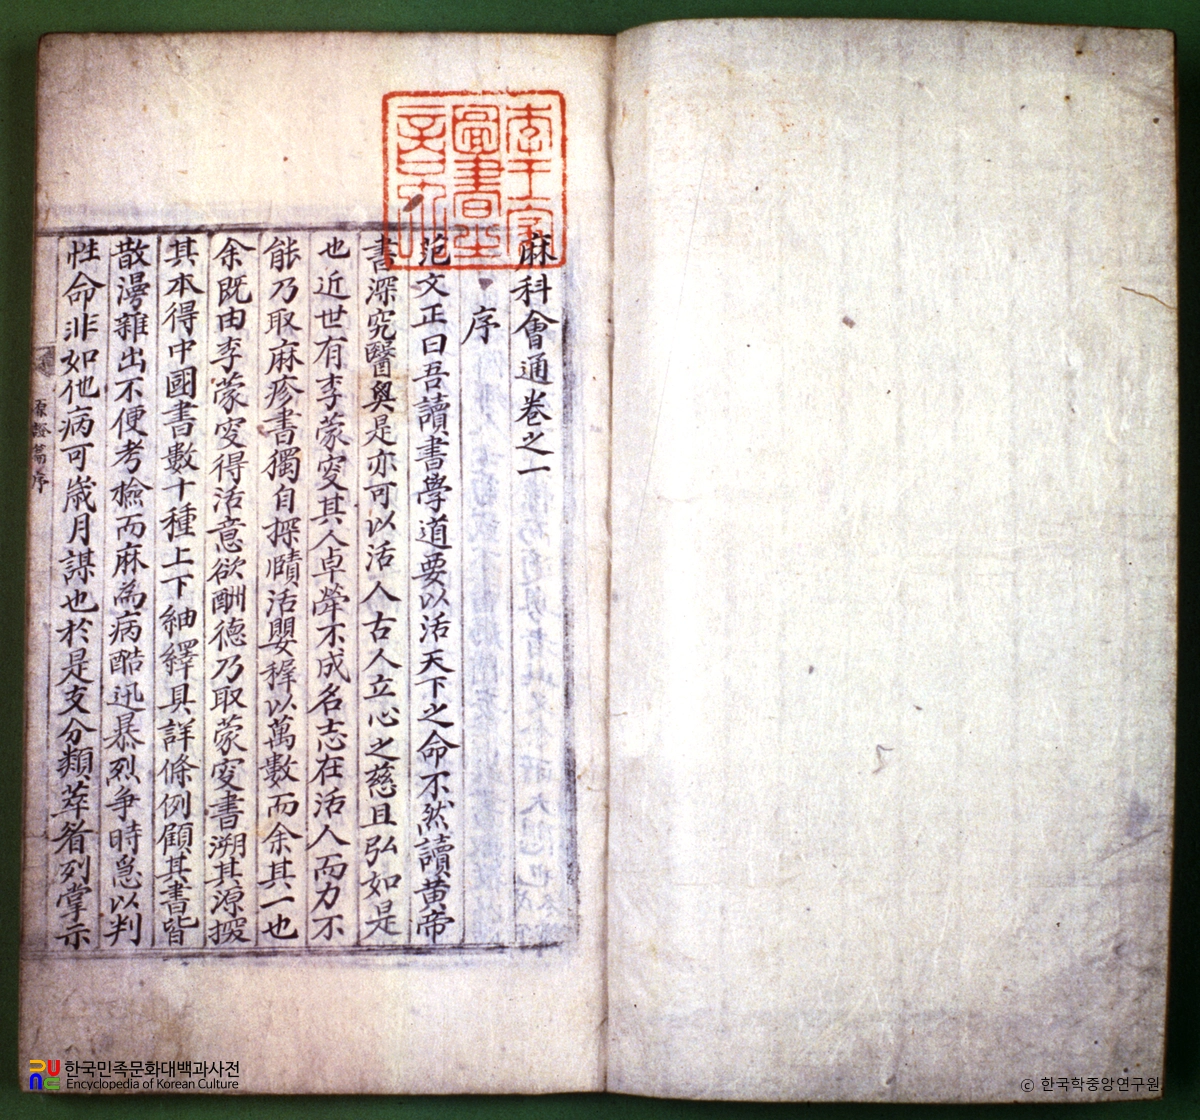 麻科會通卷之一
序
范文正曰吾讀書學道要以活天下之命不然讀黃帝
書深究醫奧是亦可以活人古人立心之慈且弘如是
也近世有李蒙叟其人卓犖不成名志在活人而力不
能乃取麻疹書獨自探賾活嬰稺以萬數而余其一也
余既由李蒙叟得活意欲酬德乃取蒙叟書溯其源探
其本得中國書數十種上下紬繹具詳條例顧其書皆
散漫雜出不便考檢而麻為病酷迅暴烈爭時急以判
性命非如他病可歲月謀也於是支分類萃眉列掌示
原證篇序
圖書
한국민족문화대백과사전
Encyclopedia of Korean Culture
ⓒ 한국학중앙연구원